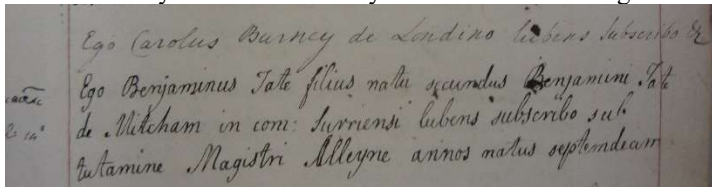 Ego Carolus Burney de Londino lubens subscribo &
Ego Benjaminus Tate filius natu secundus Benjamini Tate
de Mitcham in com: Surriensi lubens subscribo sub
tutamine Magistri Alleyne annos natus septemdecim